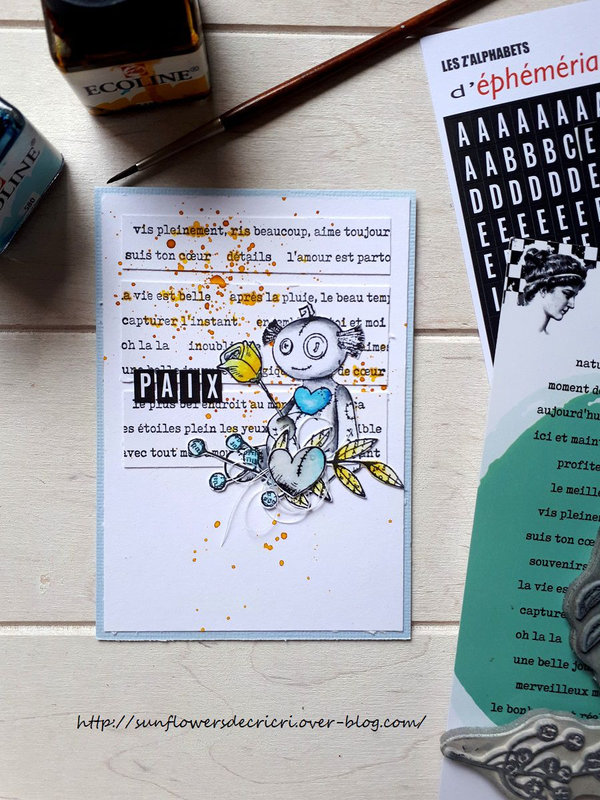 ECOLINE
LES Z'ALPHABETS
d'éphéméria
AAAAAAAA
AABBBCE
DDDDDDE
EEEEEE
vis pleinement, ris beaucoup, aime toujour
suis ton cœur détails l'amour est parto
a vie est belle après la pluie, le beau temp
capturer l'instant et moi
oh la la
PAIX
le plus bel endroit au mo
es étoiles plein les yeux
avec tout mo
natu
moment de
aujourd'hu
ici et maint
profite
le meille
vis pleine
suis ton cœ
souvenirs
la vie es
capture
oh la la
une belle jou
merveilleux m
le bon
http://sunflowersdecricri.over-blog.com/